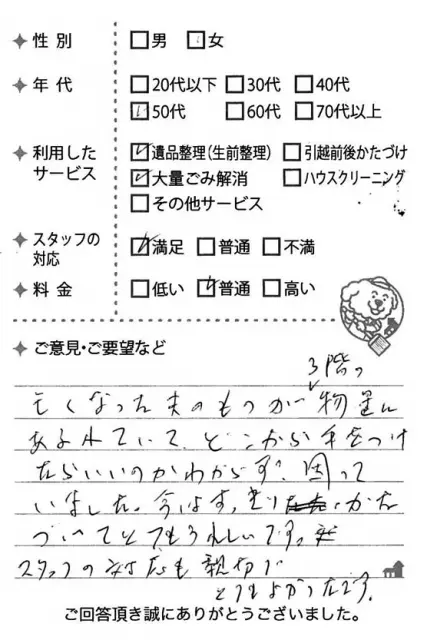 性別 □男 ☑女
年代 □20代以下 □30代 □40代
☑50代 □60代 □70代以上
利用したサービス ☑遺品整理(生前整理) □引越前後かたづけ
☑大量ごみ解消 □ハウスクリーニング
□その他サービス
スタッフの対応 ☑満足 □普通 □不満
料金 □低い ☑普通 □高い
ご意見・ご要望など
3階の
亡くなった夫のものが物置に
あふれていて、どこから手をつけ
たらいいのかわからず、困って
いました。今はすっきり かた
づいてとてもうれしいです。
スタッフの対応も親切で
とてもよかったです。
ご回答頂き誠にありがとうございました。